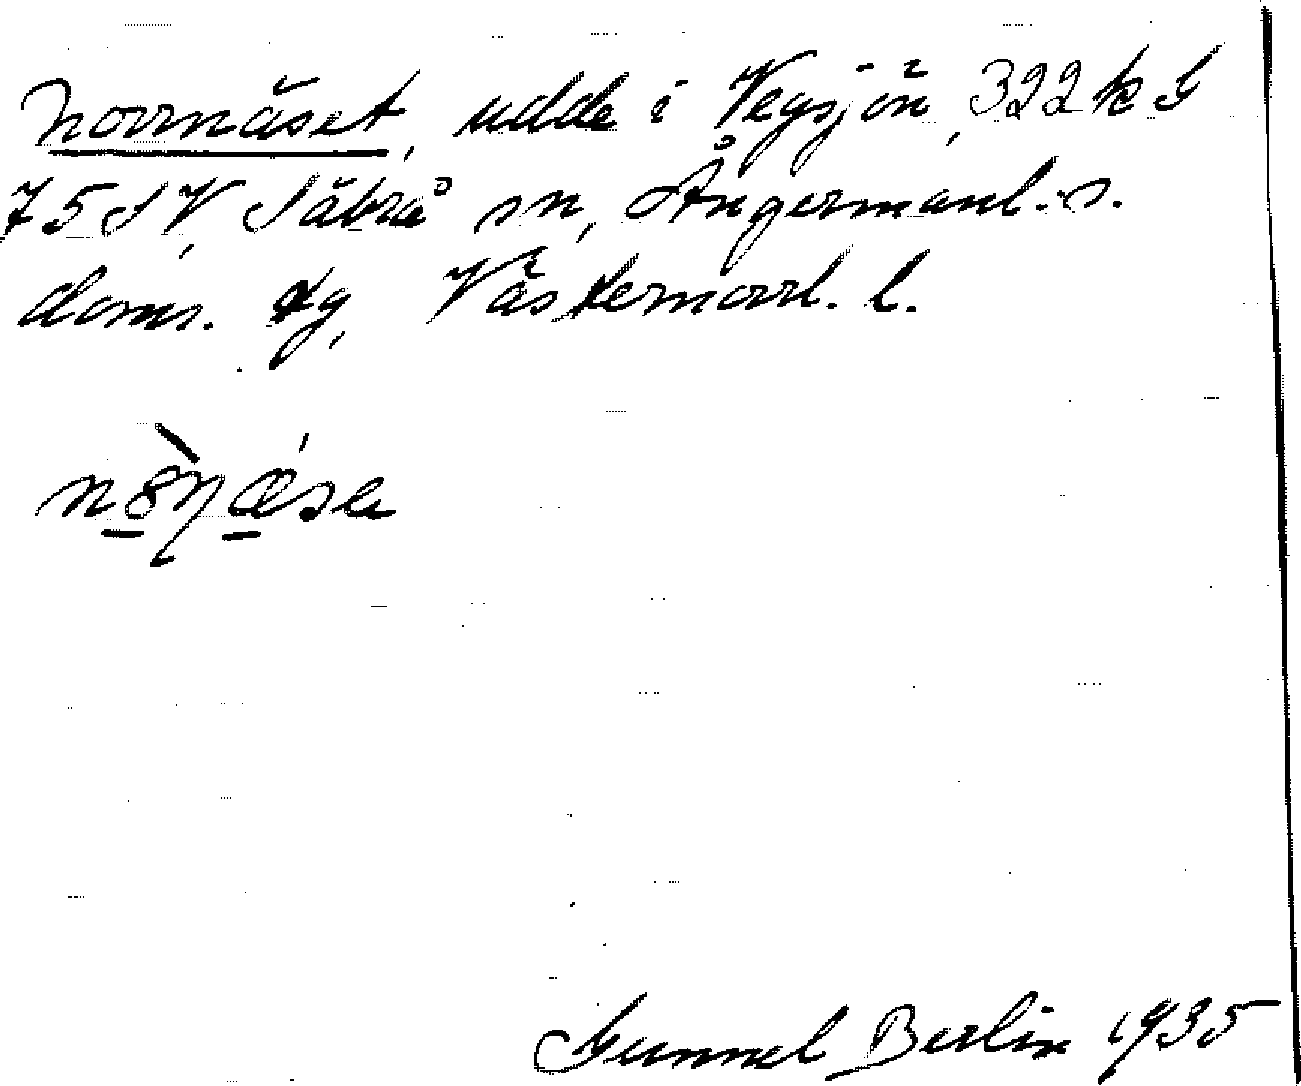 Norrnäset, udde i Vegsjön, 322 k S
75 SV, Säbrå sn, Ångermanl. s.
doms. tg, Västernorrl. l.
Gunnel Berlin 1935